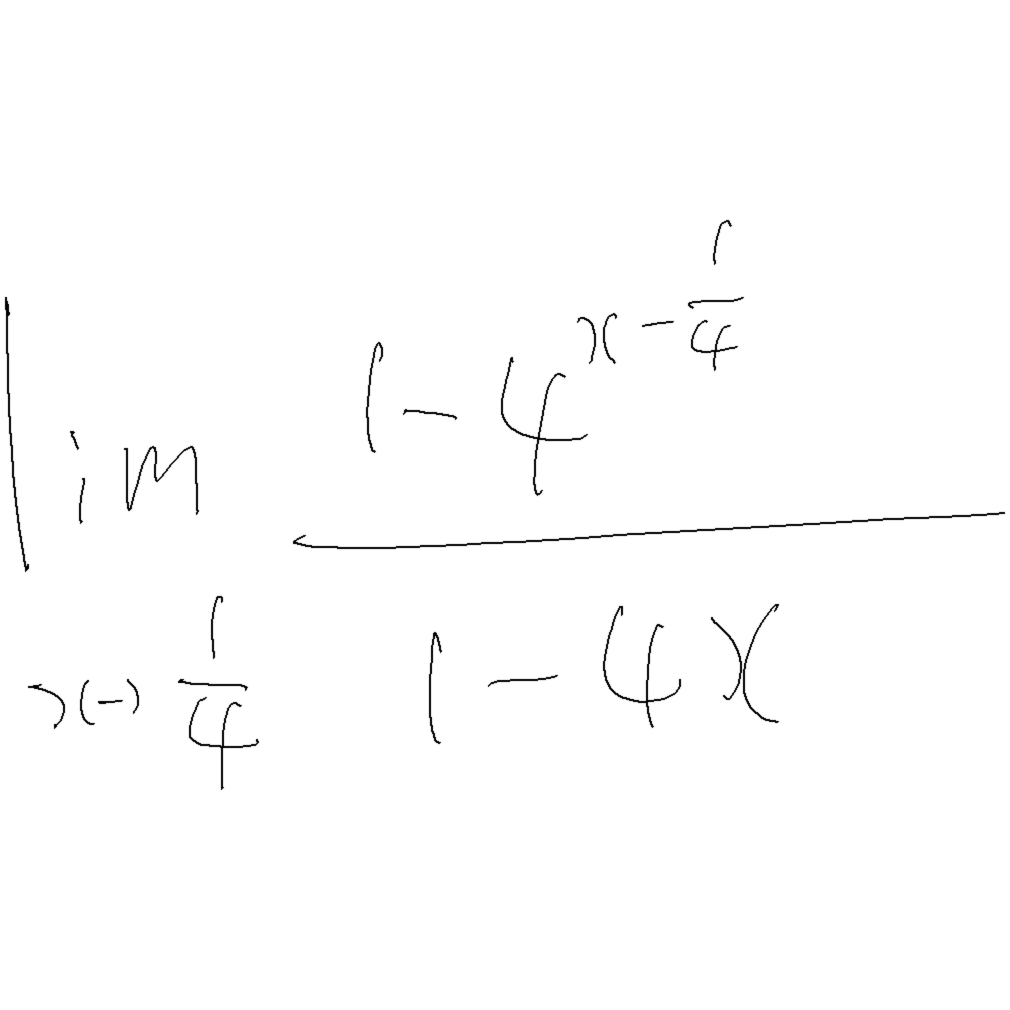 \lim_{x \to \frac{1}{4}} \frac{1-4^{x-\frac{1}{4}}}{1-4x}